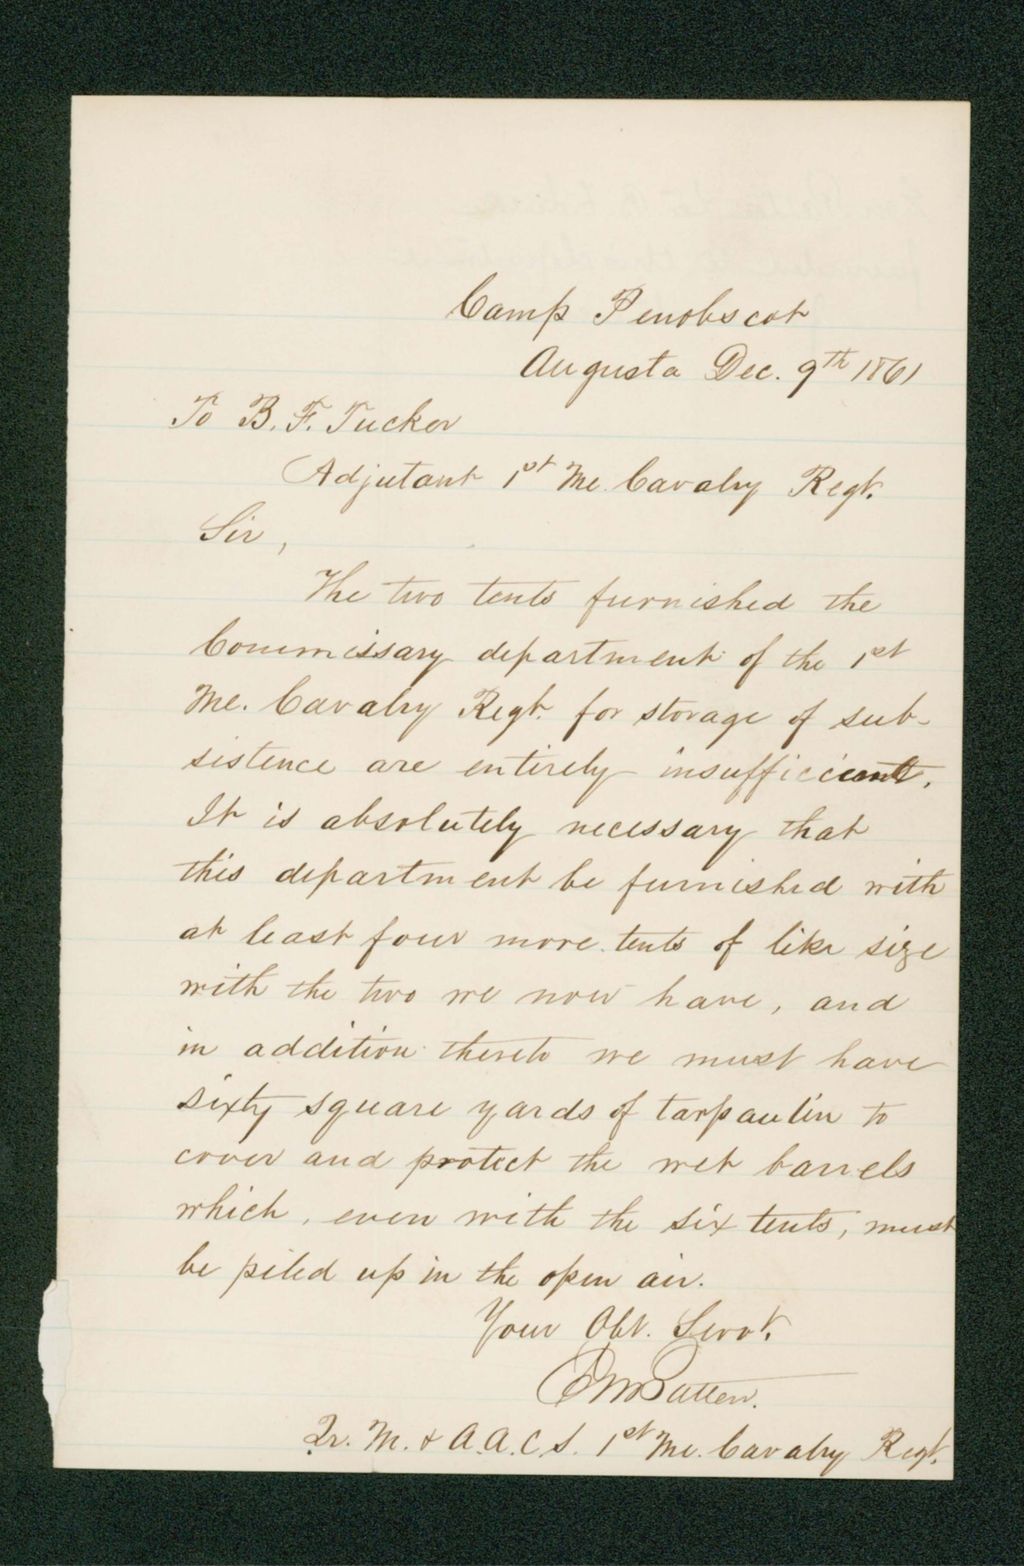 Camp Penobscot
Augusta Dec. 9th 1861
To B. F. Tucker
Adjutant 1st Me. Cavalry Regt.
Sir,
The two tents furnished the
Commissary department of the 1st
Me. Cavalry Regt. for storage of sub-
sistence are entirely insufficient.
It is absolutely necessary that
this department be furnished with
at least four more tents of like size
with the two we now have, and
in addition thereto we must have
sixty square yards of tarpaulin to
cover and protect the wet barrels
which, even with the six tents, must
be piled up in the open air.
Your Obt. Servt.
E M Patten.
Qr. M. & A. A. C. S. 1st Me. Cavalry Regt.